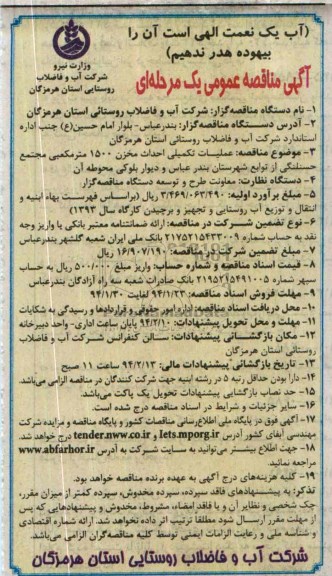 (آب یک نعمت الهی است آن را
بیهوده هدر ندهیم)
وزارت نیرو
شرکت آب و فاضلاب
روستایی استان هرمزگان
آگهی مناقصه عمومی یک مرحله‌ای
۱- نام دستگاه مناقصه‌گزار: شرکت آب و فاضلاب روستائی استان هرمزگان
۲- آدرس دستگاه مناقصه‌گزار: بندرعباس- بلوار امام حسین(ع) جنب اداره
استاندارد شرکت آب و فاضلاب روستائی استان هرمزگان
۳- موضوع مناقصه: عملیات تکمیلی احداث مخزن ۱۵۰۰ مترمکعبی مجتمع
حسنلنگی از توابع شهرستان بندر عباس و دیوار بلوکی محوطه آن
۴- دستگاه نظارت: معاونت طرح و توسعه دستگاه مناقصه‌گزار
۵- مبلغ برآورد اولیه: ۳/۴۶۹/۰۶۳/۴۹۰ ریال (براساس فهرست بهاء ابنیه و
انتقال و توزیع آب روستایی و تجهیز و برچیدن کارگاه سال ۱۳۹۳)
۶- نوع تضمین شرکت در مناقصه: ارائه ضمانتنامه معتبر بانکی یا واریز وجه
نقد به حساب شماره ۲۱۷۵۲۱۵۴۳۳۰۰۹ بانک ملی ایران شعبه گلشهر بندرعباس
۷- مبلغ تضمین شرکت در مناقصه: ۱۶/۹۰۷/۱۹۰ ریال
۸- قیمت اسناد مناقصه و شماره حساب: واریز مبلغ ۵۰۰/۰۰۰ ریال به حساب
سپهر شماره ۲۱۹۵۲۹۵۴۹۱۰۰۵ بانک صادرات شعبه سه راه آزادگان بندرعباس
۹- مهلت فروش اسناد مناقصه: ۹۴/۱/۲۳ لغایت ۹۴/۱/۳۰
۱۰- محل دریافت اسناد مناقصه: اداره امور حقوقی و قراردادها و رسیدگی به شکایات
۱۱- مهلت و محل تحویل پیشنهادات: ۹۴/۲/۱۰ پایان ساعت اداری- واحد دبیرخانه
۱۲- مکان بازگشائی پیشنهادات: سالن کنفرانس شرکت آب و فاضلاب
روستائی استان هرمزگان
۱۳- تاریخ بازگشائی پیشنهادات مالی: ۹۴/۲/۱۳ ساعت ۱۱ صبح
۱۴- دارا بودن حداقل رتبه ۵ در رشته ابنیه جهت شرکت کنندگان در مناقصه الزامی می‌باشد.
۱۵- حد نصاب بازگشایی پیشنهادات تحویل یک پاکت می‌باشد.
۱۶- سایر جزئیات و شرایط در اسناد مناقصه درج شده است.
۱۷- آگهی فوق در پایگاه ملی اطلاع‌رسانی مناقصات کشور و پایگاه مناقصه و مزایده شرکت
مهندسی آبفای کشور آدرس iets.mporg.ir و tender.nww.co.ir درج خواهد شد.
۱۸- جهت اطلاع بیشتر می توانید به سایت شرکت به آدرس www.abfarhor.ir
مراجعه نمائید.
۱۹- کلیه هزینه‌های درج آگهی به عهده برنده مناقصه خواهد بود.
تذکر: به پیشنهادهای فاقد سپرده، سپرده مخدوش، سپرده کمتر از میزان مقرر،
چک شخصی و نظایر آن و یا فاقد امضاء، مشروط، مخدوش و پیشنهادهایی که پس
از مهلت مقرر ارسال شود مطلقا ترتیب اثر داده نخواهد شد. ارائه شماره اقتصادی
و شناسه ملی و رعایت الزامات ایمنی توسط کلیه مناقصه‌گران الزامی می‌باشد.
شرکت آب و فاضلاب روستایی استان هرمزگان